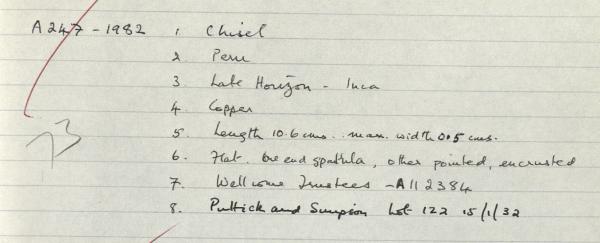 A247-1982 1. Chisel
2 Peru
3. Late Horizon - Inca
4. Copper
5. Length 10.6 cms. max. width 0.5 cms.
6. Flat. One end spatula, other pointed, encrusted
7. Wellcome Trustees - A112384
8. Puttick and Simpson Lot 122 15/1/32
73